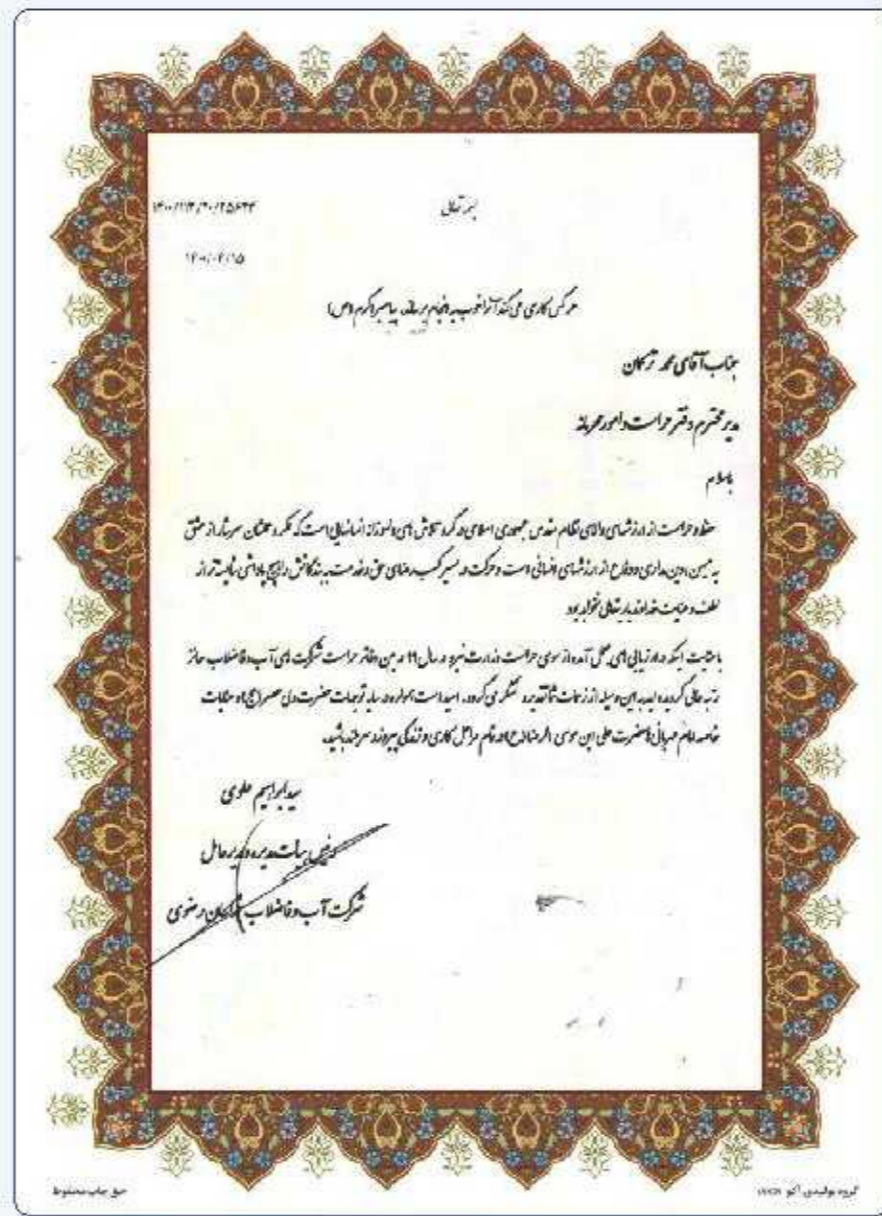 بسمه تعالی
۱۴۰۰/۰۴/۱۵
هر کس کاری می کند آنرا خوب به انجام برساند، پیامبر اکرم (ص)
جناب آقای محمد ترکان
مدیر محترم دفتر حراست و امور محرمانه
باسلام
حفظ و حراست از ارزشهای والای نظام مقدس جمهوری اسلامی در گرو تلاش های دلسوزانه انسانهایی است که عملکردشان سرشار از عشق
به میهن، دین مداری و دفاع از ارزشهای انسانی است و حرکت در مسیر کسب رضای حق و خدمت به بندگانش را هیچ پاداشی شایسته تر از
لطف و عنایت خداوند باریتعالی نخواهد بود
با عنایت اینکه در ارزیابی های بعمل آمده از سوی حراست وزارت نیرو در سال ۹۹ در بین دفاتر حراست شرکت های آب و فاضلاب حائز
رتبه عالی گردیده اید، به این وسیله از زحمات شما تقدیر و تشکر می گردد. امید است همواره در سایه توجهات حضرت ولی عصر (عج) و عنایات
خاصه امام مهربانی ها حضرت علی ابن موسی الرضا (ع) در تمام مراحل کاری و زندگی پیروز و سربلند باشید.
سید ابراهیم علوی
رئیس هیات مدیره و مدیرعامل
شرکت آب و فاضلاب خراسان رضوی
حق چاپ محفوظ
گروه تولیدی آکو